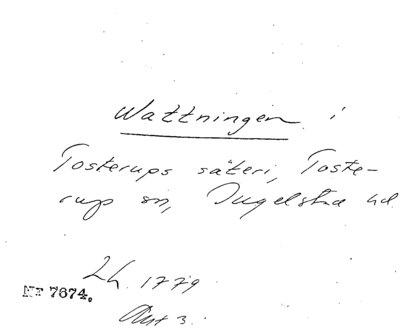 Wattningen i
Tosterups säteri, Toste-
rup sn, Ingelstad hd
Lh. 1779
Nr 7674.
Akt 3.